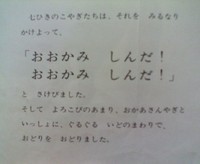 七ひきのこやぎたちは、それを みるなり
かけよって、
「おおかみ しんだ!
おおかみ しんだ!」
と さけびました。
そして よろこびのあまり、おかあさんやぎと
いっしょに、ぐるぐる いどのまわりで、
おどりを おどりました。